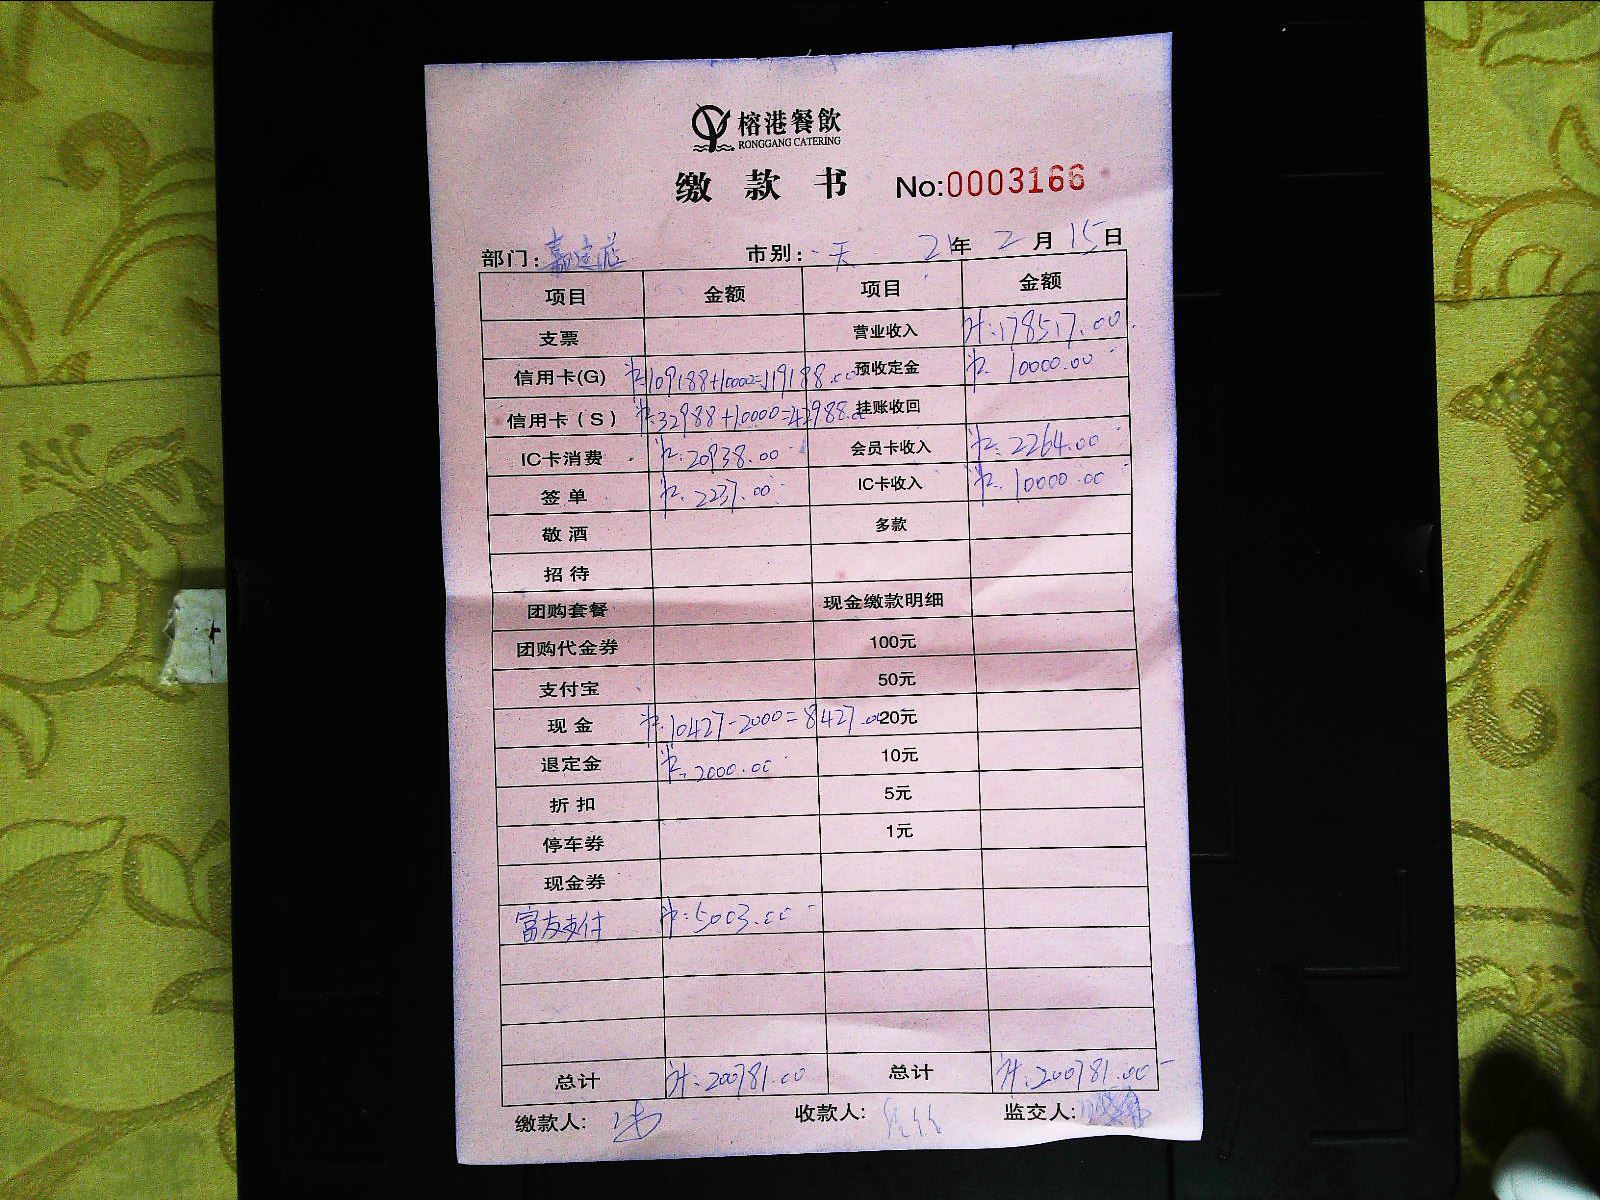 榕港餐飲
RONGGANG CATERING
缴款书 No:0003166
部门: 市别: 一天 21年2月15日
项目 金额 项目 金额
支票 营业收入 计:178517.00
信用卡(G) 109188+10000=119188.00 预收定金 10000.00
信用卡(S) 32988+10000=42988.00 挂账收回
IC卡消费 20938.00 会员卡收入 2264.00
签单 2237.00 IC卡收入 10000.00
敬酒 多款
招待
团购套餐 现金缴款明细
团购代金券 100元
支付宝 50元
现金 10427-2000=8427.00 20元
退定金 2000.00 10元
折扣 5元
停车券 1元
现金券
富友支付 5003.00
总计 计:200781.00 总计 计:200781.00
缴款人: 收款人: 监交人: